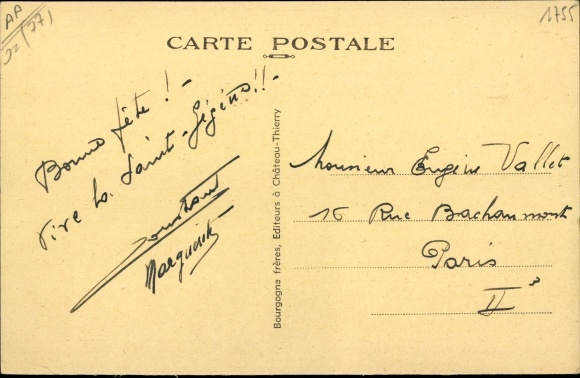 AA
1755
CARTE POSTALE
Bonne fête ! -
Vive la Saint-Gégène!! -
Constant
Marguerite
Bourgogne frères, Editeurs à Château-Thierry
Monsieur Eugène Vallet
16 Rue Bachaumont
Paris
IIe